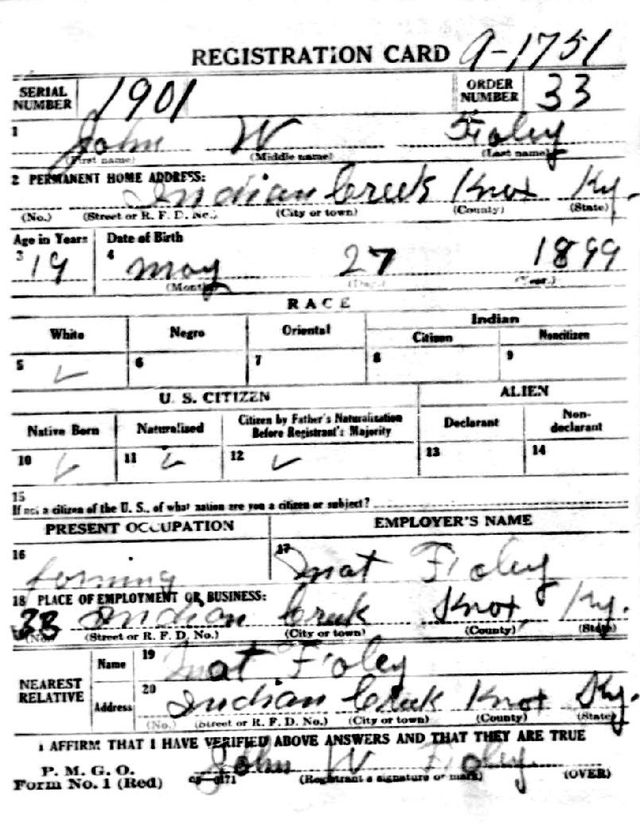 REGISTRATION CARD 9-1751
SERIAL NUMBER 1901 ORDER NUMBER 33
1 John W Fioley
(First name) (Middle name) (Last name)
2 PERMANENT HOME ADDRESS: Indian Creek Knox Ky.
(No.) (Street or R. F. D. No.) (City or town) (County) (State)
Age in Years Date of Birth
3 19 4 may 27 1899
(Month) (Day) (Year)
RACE
White Negro Oriental Indian
Citizen Noncitizen
5 ✓ 6 7 8 9
U. S. CITIZEN ALIEN
Native Born Naturalized Citizen by Father's Naturalization Before Registrant's Majority Declarant Non-declarant
10 ✓ 11 ✓ 12 ✓ 13 14
15
If not a citizen of the U. S., of what nation are you a citizen or subject?
PRESENT OCCUPATION EMPLOYER'S NAME
16 forming 17 mat Fioley
18 PLACE OF EMPLOYMENT OR BUSINESS:
33 Indian Creek Knox, Ky.
(No.) (Street or R. F. D. No.) (City or town) (County) (State)
NEAREST RELATIVE
Name 19 mat Fioley
Address 20 Indian Creek Knox Ky.
(No.) (Street or R. F. D. No.) (City or town) (County) (State)
I AFFIRM THAT I HAVE VERIFIED ABOVE ANSWERS AND THAT THEY ARE TRUE
P. M. G. O.
Form No. 1 (Red) John W Fioley
(Registrant's signature or mark) (OVER)